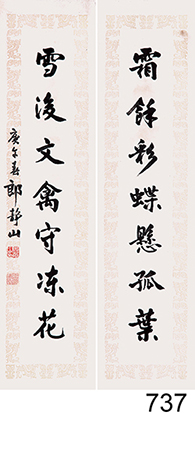 霜餘彩蝶懸孤葉
雪後文禽守凍花
庚午春 郎靜山
737